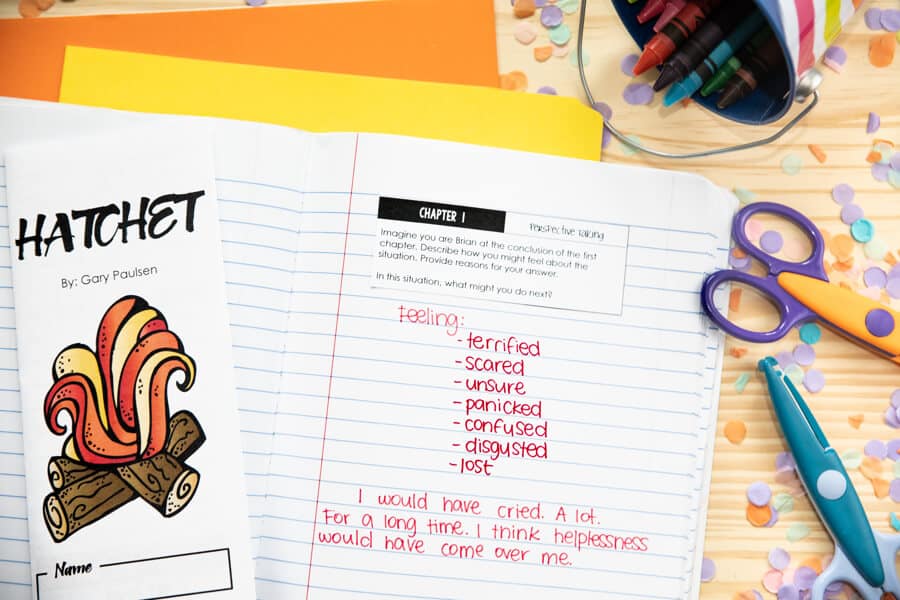 HATCHET
By: Gary Paulsen
Name
CHAPTER 1
Perspective Taking
Imagine you are Brian at the conclusion of the first
chapter. Describe how you might feel about the
situation. Provide reasons for your answer.
In this situation, what might you do next?
Feeling:
- terrified
- scared
- unsure
- panicked
- confused
- disgusted
- lost
I would have cried. A lot.
For a long time. I think helplessness
would have come over me.